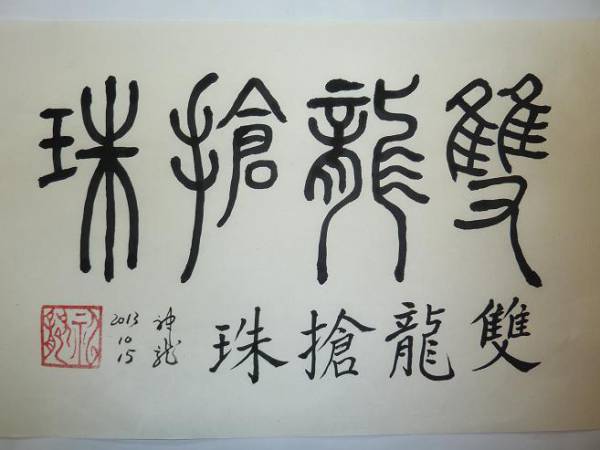 雙龍搶珠
雙龍搶珠
神龍
2013
10.15